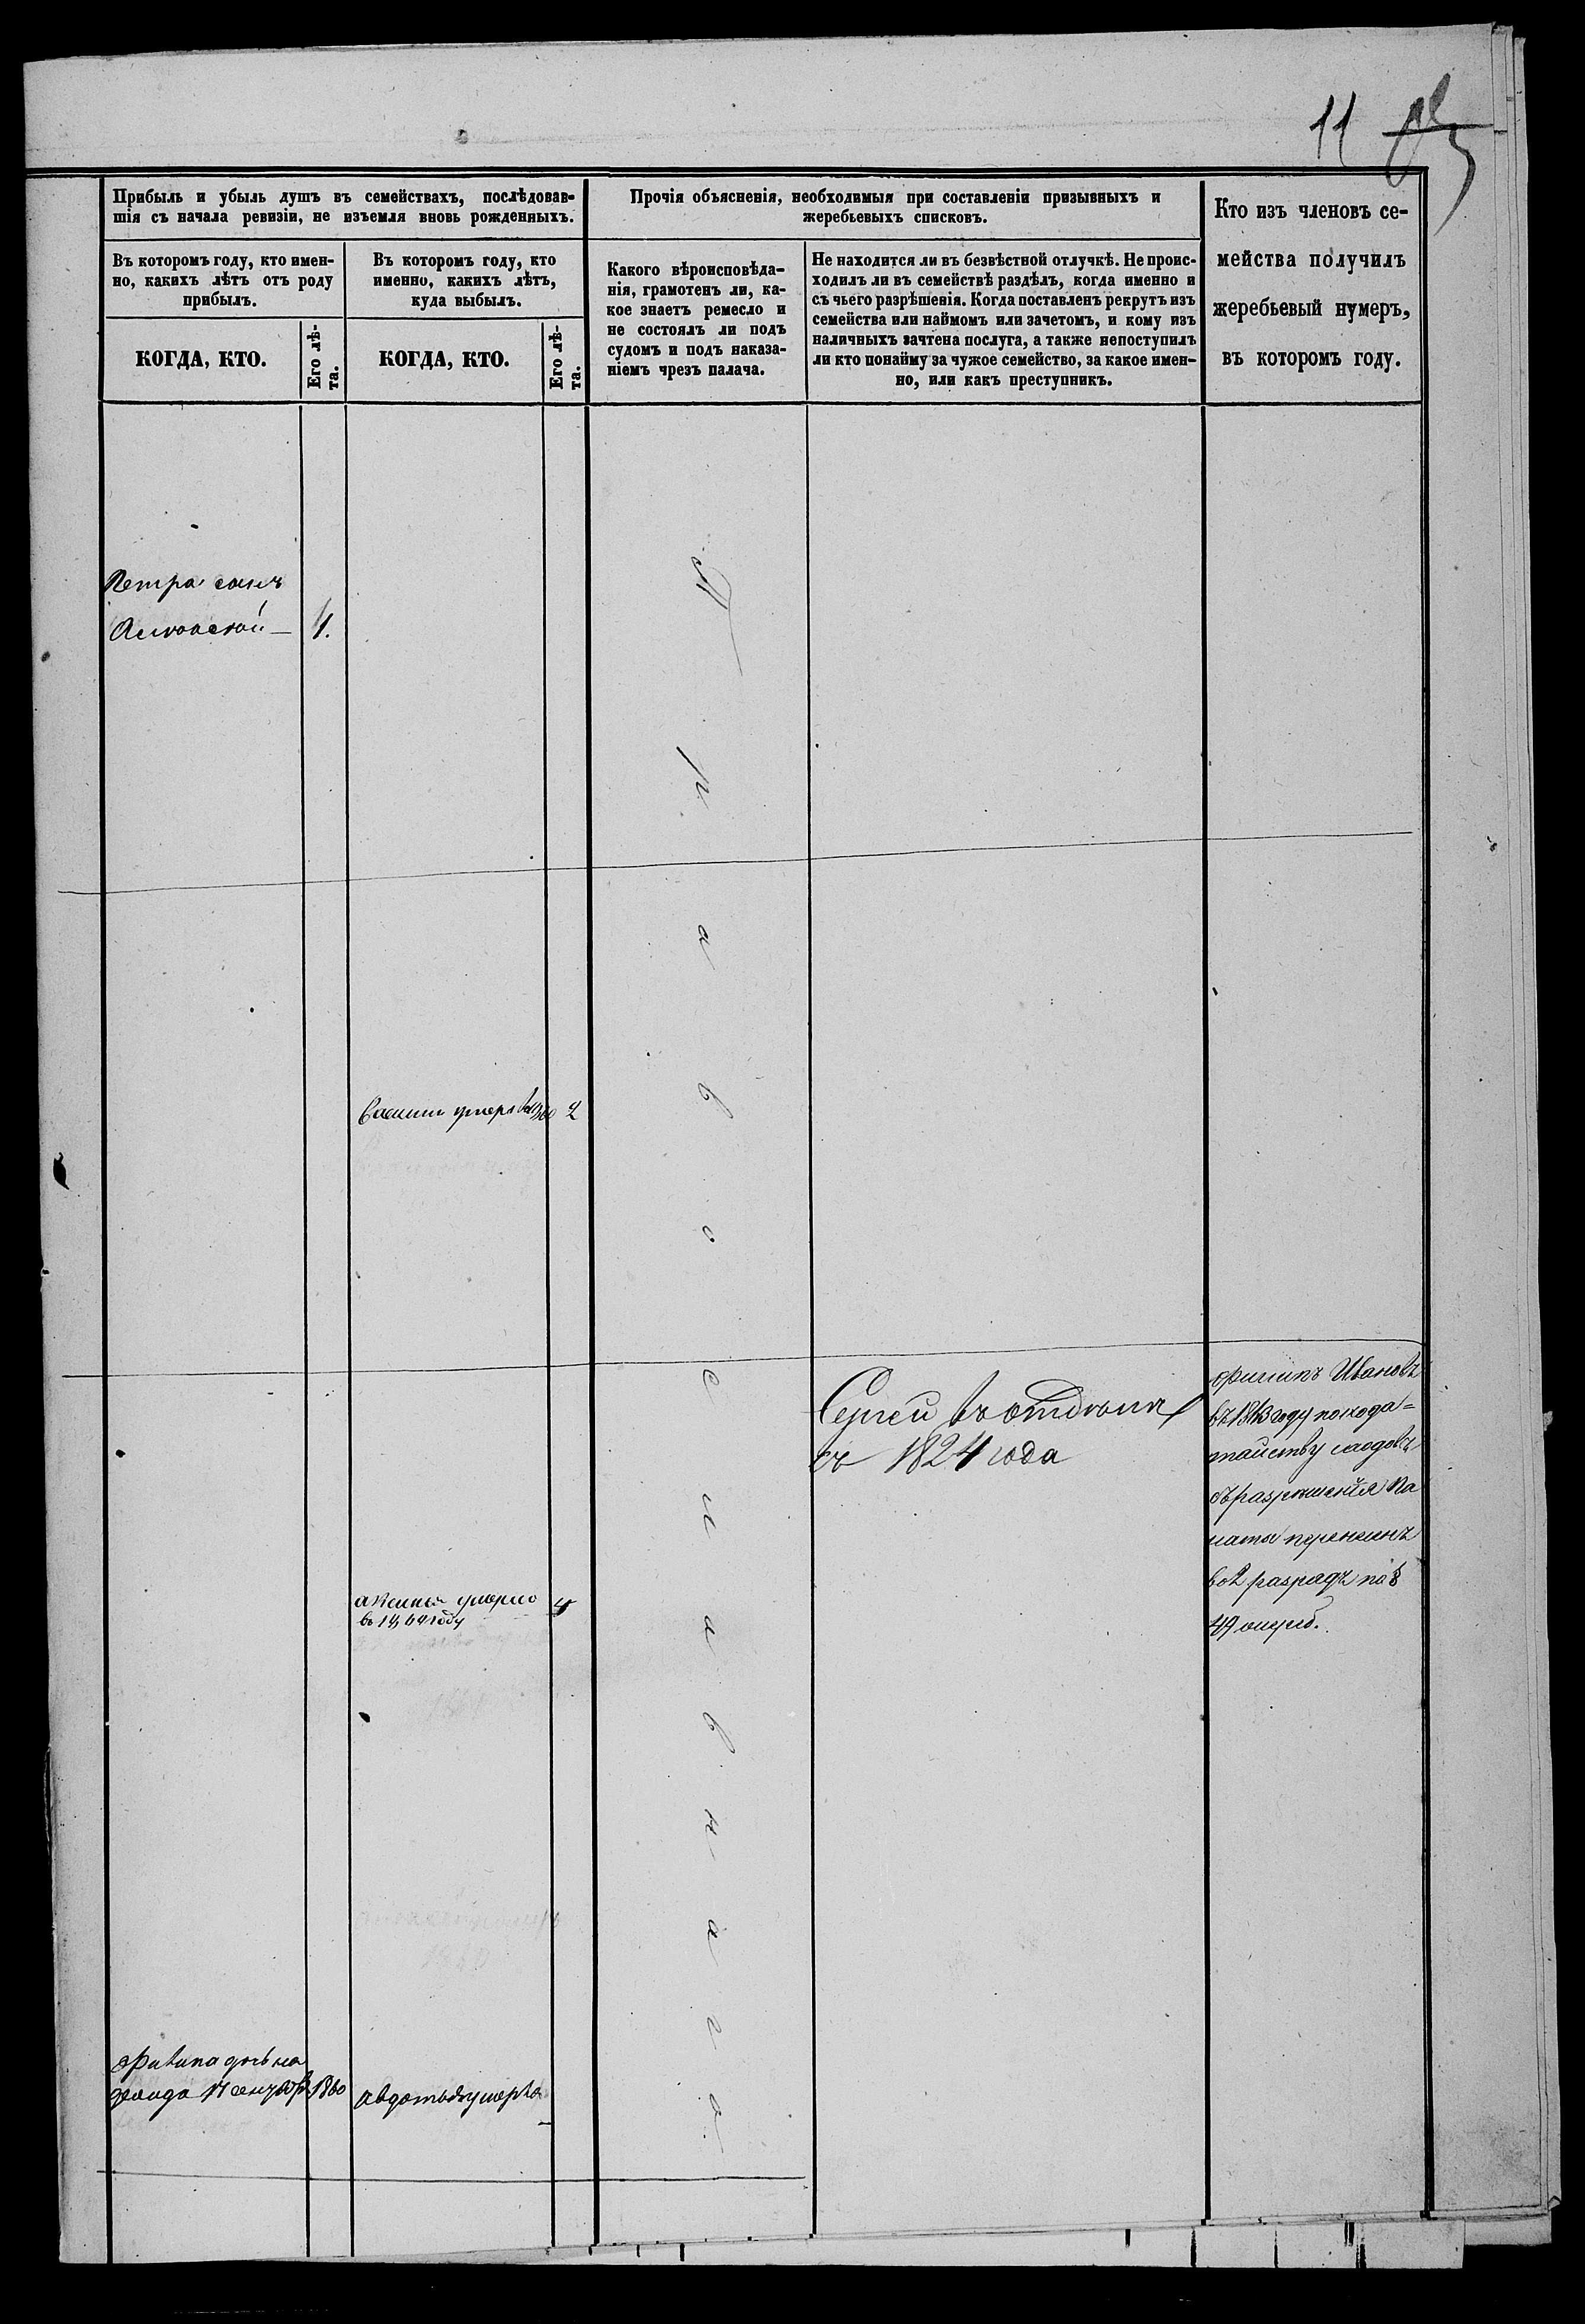 11
Прибыль и убыль душъ въ семействахъ, послѣдовав-
шія съ начала ревизіи, не изъемля вновь рожденныхъ.
Прочія объясненія, необходимыя при составленіи призывныхъ и
жеребьевыхъ списковъ.
Кто изъ членовъ се-
мейства получилъ
жеребьевый нумеръ,
въ которомъ году.
Въ которомъ году, кто имен-
но, какихъ лѣтъ отъ роду
прибылъ.
Въ которомъ году, кто
именно, какихъ лѣтъ,
куда выбылъ.
Какого вѣроисповѣда-
нія, грамотенъ ли, ка-
кое знаетъ ремесло и
не состоялъ ли подъ
судомъ и подъ наказа-
ніемъ чрезъ палача.
Не находится ли въ безвѣстной отлучкѣ. Не проис-
ходилъ ли въ семействѣ раздѣлъ, когда именно и
съ чьего разрѣшенія. Когда поставленъ рекрутъ изъ
семейства или наймомъ или зачетомъ, и кому изъ
наличныхъ зачтена послуга, а также непоступилъ
ли кто понайму за чужое семейство, за какое имен-
но, или какъ преступникъ.
КОГДА, КТО.
Его лѣ-
та.
КОГДА, КТО.
Его лѣ-
та.
Петра сынъ
4.
Православнаго
умеръ 2
Сергей
съ 1824 года
Филипъ Ивановъ
въ году по хода=
тайству
съ разрешения Па
латы
во 2 разрядъ по §
49
аксинья умерло 4
въ году
1860
авдотья умерла